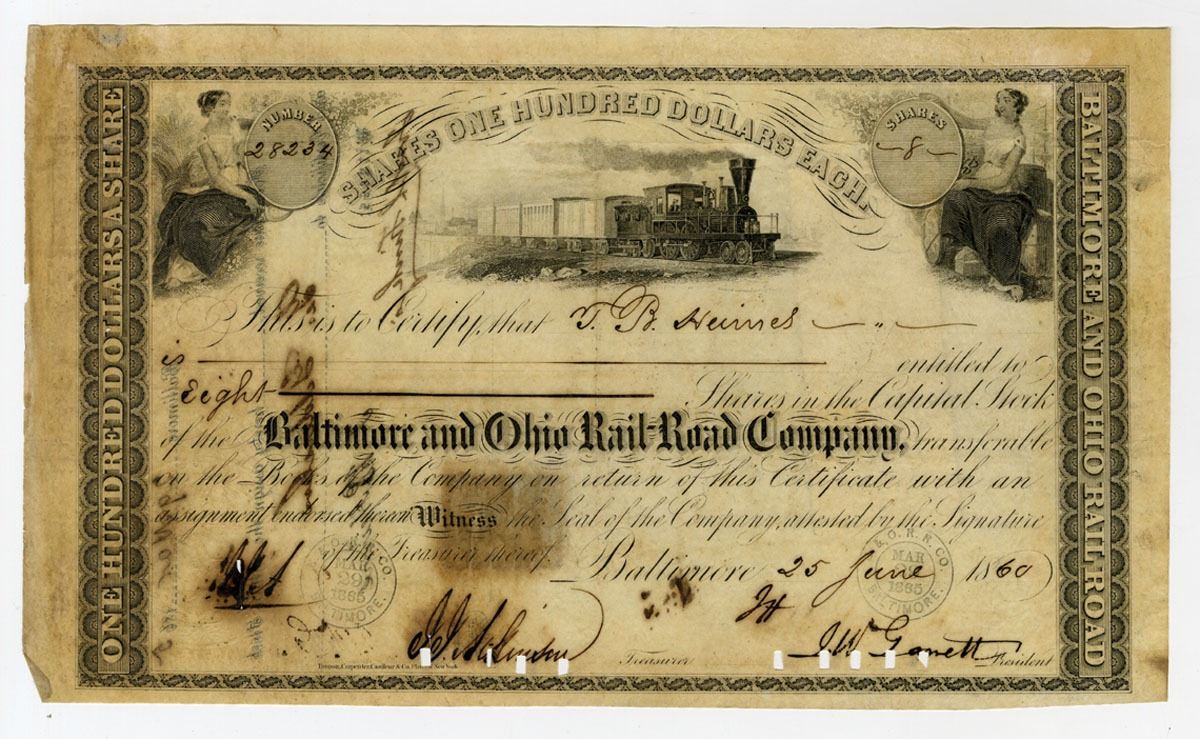 NUMBER
28234
SHARES ONE HUNDRED DOLLARS EACH.
SHARES
8
ONE HUNDRED DOLLARS A SHARE
BALTIMORE AND OHIO RAIL ROAD
This is to Certify, that T. B. Heimes
is entitled to
Eight Shares in the Capital Stock
of the Baltimore and Ohio Rail-Road Company, transferable
on the Books of the Company on return of this Certificate with an
assignment endorsed thereon Witness the Seal of the Company, attested by the Signature
of the Treasurer thereof. Baltimore 25 June 1860
& O. R. R. CO.
MAR
29
1865
BALTIMORE.
& O. R. R. CO.
MAR
1865
BALTIMORE.
Treasurer
J W Garrett President